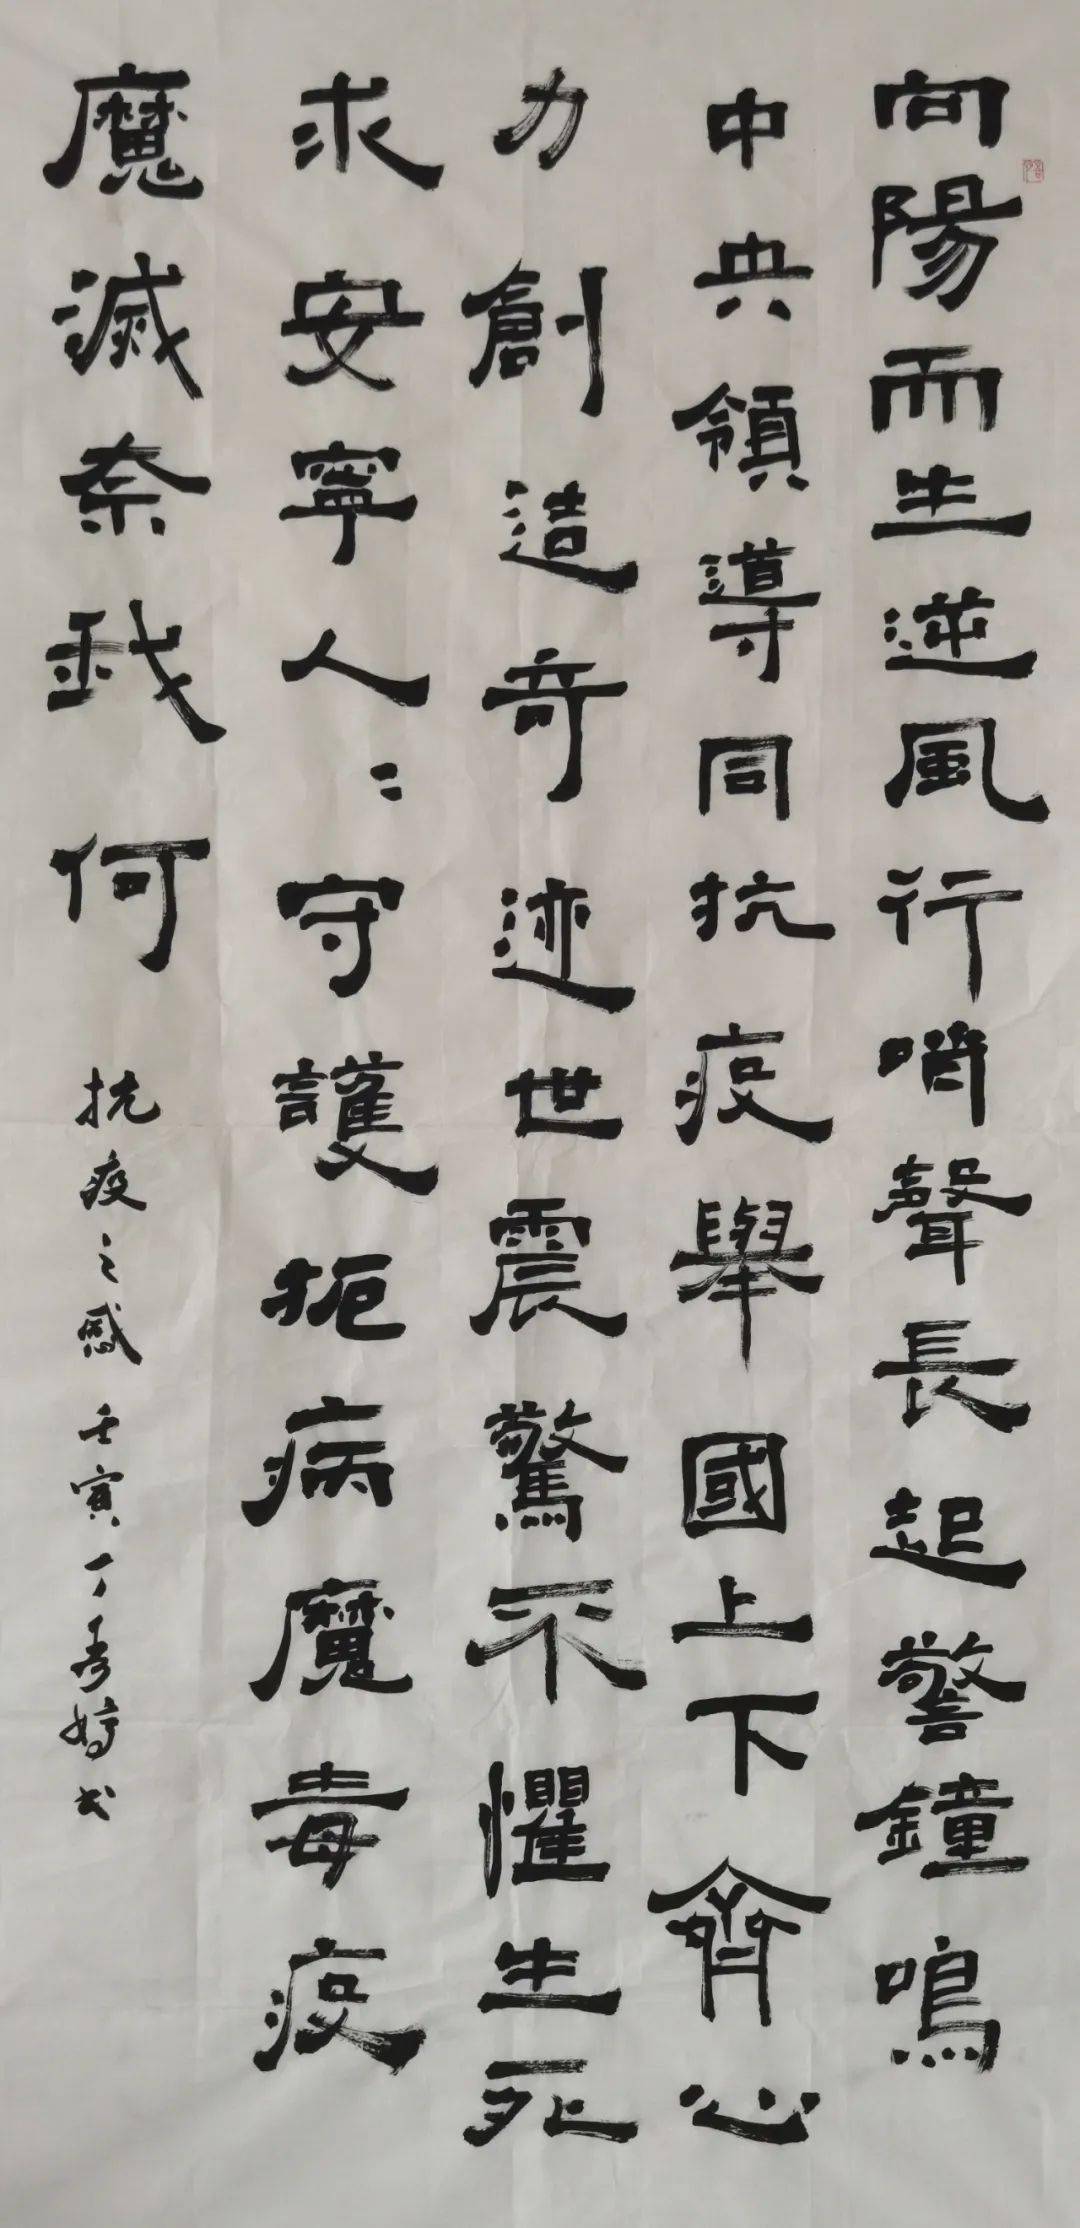 向陽而生逆風行哨聲長起警鐘鳴
中央領導同抗疫舉國上下齊心
力創造奇迹世震驚不懼生死
求安寧人〻守護扼病魔毒疫
魔滅奈我何
抗疫之感壬寅丁秀婷书